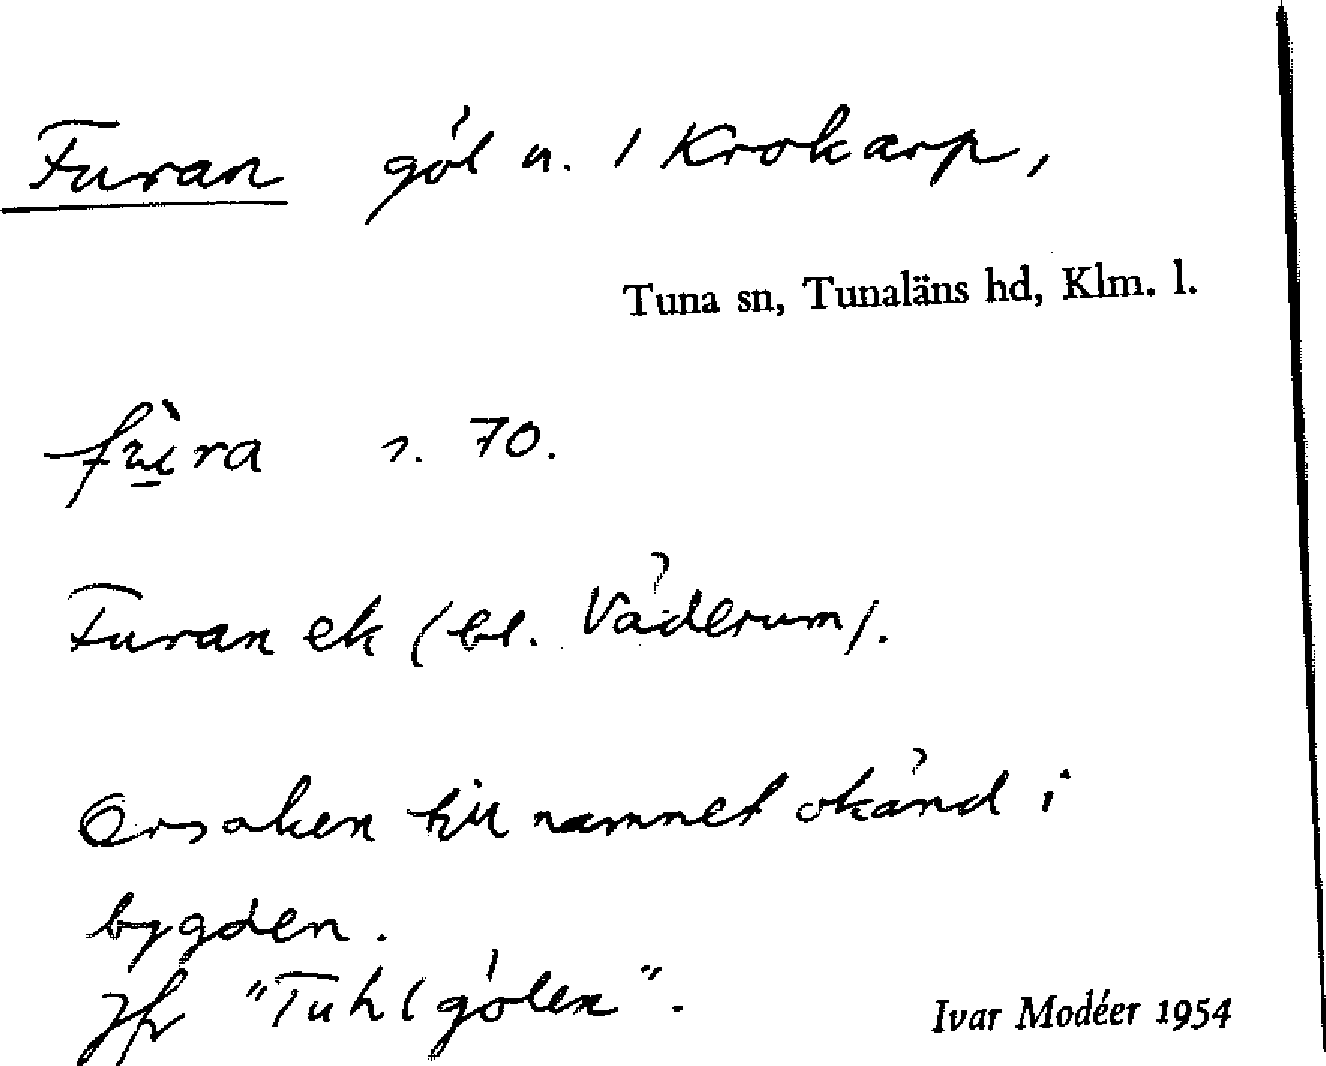 Furan göl n. / Krokarp,
Tuna sn, Tunaläns hd, Klm. l.
fùra s. 70.
Furan ek (bl. Väderum/.
Orsaken till namnet okänd i
bygden.
Jfr "Tuh(gölen".
Ivar Modéer 1954